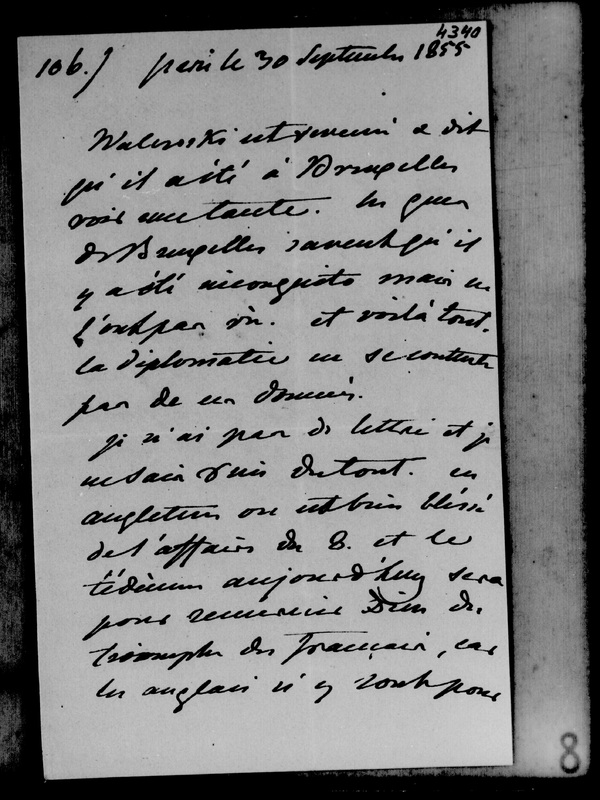 4340
106.) paris le 30 Septembre 1855
Walewski est revenu & dit
qu'il a été à Bruxelles
voir une tante. les gens
de Bruxelles savent qu'il
y a été incognito mais ne
l'ont pas vu. et voilà tout.
la diplomatie ne se contente
pas de ces données.
je n'ai pas de lettre et je
ne sais rien du tout. en
angleterre on est bien blessé
de l'affaire du 8. et le
tédéum aujourd'huy sera
pour remercier Dieu du
triomphe des français, car
les anglais n'y sont pour
8